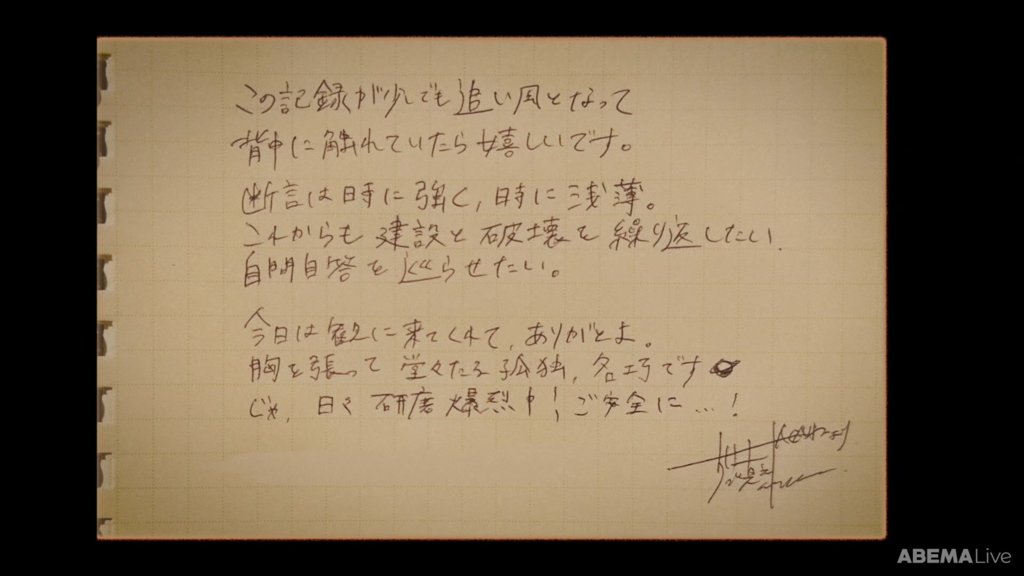 この記録が少しでも追い風となって
背中に触れていたら嬉しいです。
断言は時に強く、時に浅薄。
これからも建設と破壊を繰り返したい、
自問自答を巡らせたい。
今日は観に来てくれて、ありがとよ。
胸を張って堂々たる孤独、名巧です
じゃ、日々研磨爆烈中!ご安全に…!
ABEMA Live